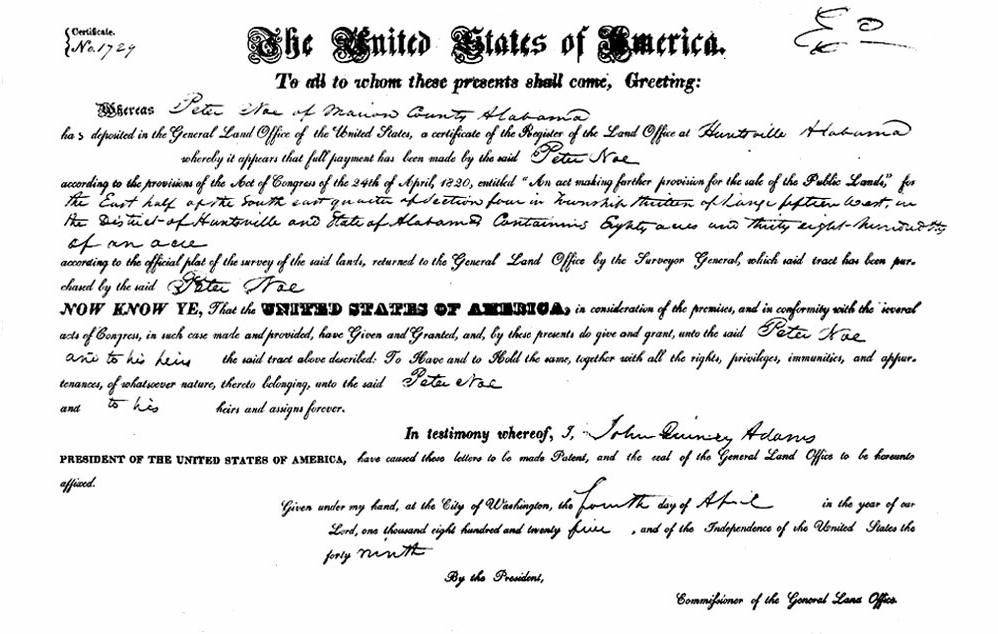 Certificate.
No. 1729
The United States of America.
To all to whom these presents shall come, Greeting:
Whereas Peter Noe of Marion County Alabama
has deposited in the General Land Office of the United States, a certificate of the Register of the Land Office at Huntsville Alabama
whereby it appears that full payment has been made by the said Peter Noe
according to the provisions of the Act of Congress of the 24th of April, 1820, entitled "An act making farther provision for the sale of the Public Lands," for
the East half of the South east quarter of Section four in Township thirteen of Range fifteen West, in
the District of Huntsville and State of Alabama Containing Eighty acres and thirty eight hundredths
of an acre
according to the official plat of the survey of the said lands, returned to the General Land Office by the Surveyor General, which said tract has been pur-
chased by the said Peter Noe
NOW KNOW YE, That the UNITED STATES OF AMERICA, in consideration of the premises, and in conformity with the several
acts of Congress, in such case made and provided, have Given and Granted, and, by these presents do give and grant, unto the said Peter Noe
and to his heirs the said tract above described: To Have and to Hold the same, together with all the rights, privileges, immunities, and appur-
tenances, of whatsoever nature, thereto belonging, unto the said Peter Noe
and to his heirs and assigns forever.
In testimony whereof, I, John Quincy Adams
PRESIDENT OF THE UNITED STATES OF AMERICA, have caused these letters to be made Patent, and the seal of the General Land Office to be hereunto
affixed.
Given under my hand, at the City of Washington, the fourth day of April in the year of our
Lord, one thousand eight hundred and twenty five, and of the Independence of the United States the
forty ninth
By the President,
Commissioner of the General Land Office.